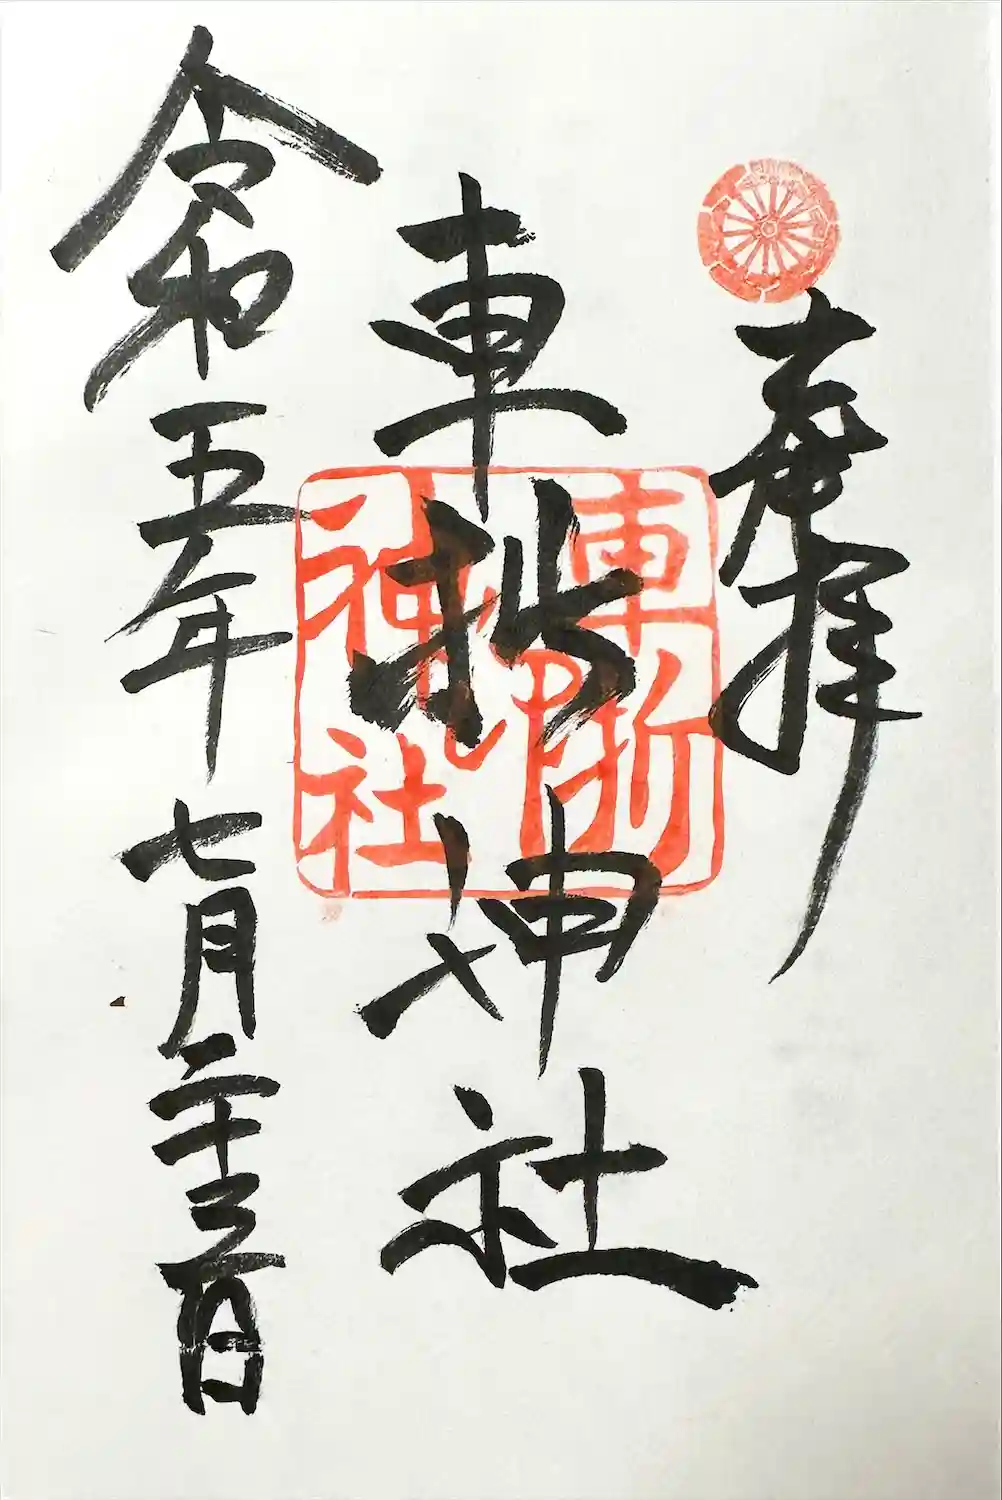 奉拝
車折神社
令和五年七月二十三日
車折
神社